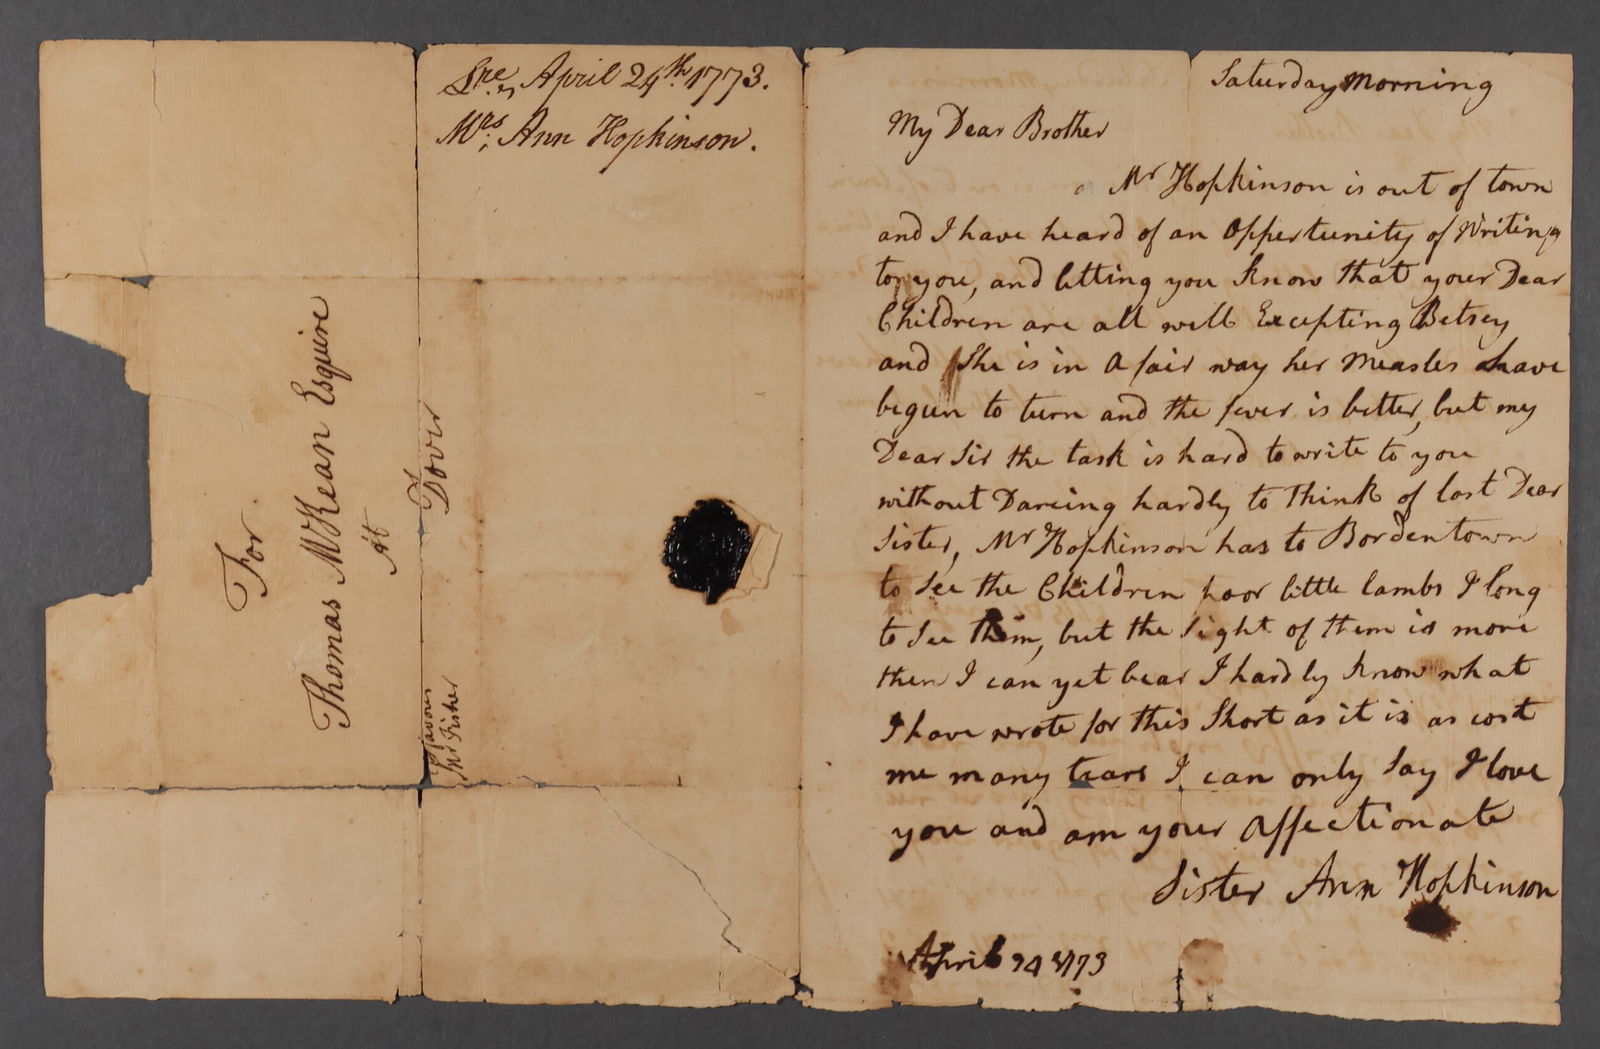 Lre, April 24th. 1773.
Mrs. Ann Hopkinson.
For
Thomas McKean Esquire
At
Dover
favour
Mr Fisher
Saturday Morning
My Dear Brother
Mr Hopkinson is out of town
and I have heard of an Oppertunity of Writing
to you, and letting you know that your Dear
Children are all well Excepting Betsey
and She is in a fair way her measles have
begun to turn and the fever is better, but my
Dear Sir the task is hard to write to you
without Dareing hardly to think of lost Dear
Sister, Mr Hopkinson has to Bordentown
to See the Children poor little lambs I long
to See them, but the Sight of them is more
then I can yet bear I hardly know what
I have wrote for this Short as it is as cost
me many tears I can only Say I love
you and am your affectionate
Sister Ann Hopkinson
April 24 1773